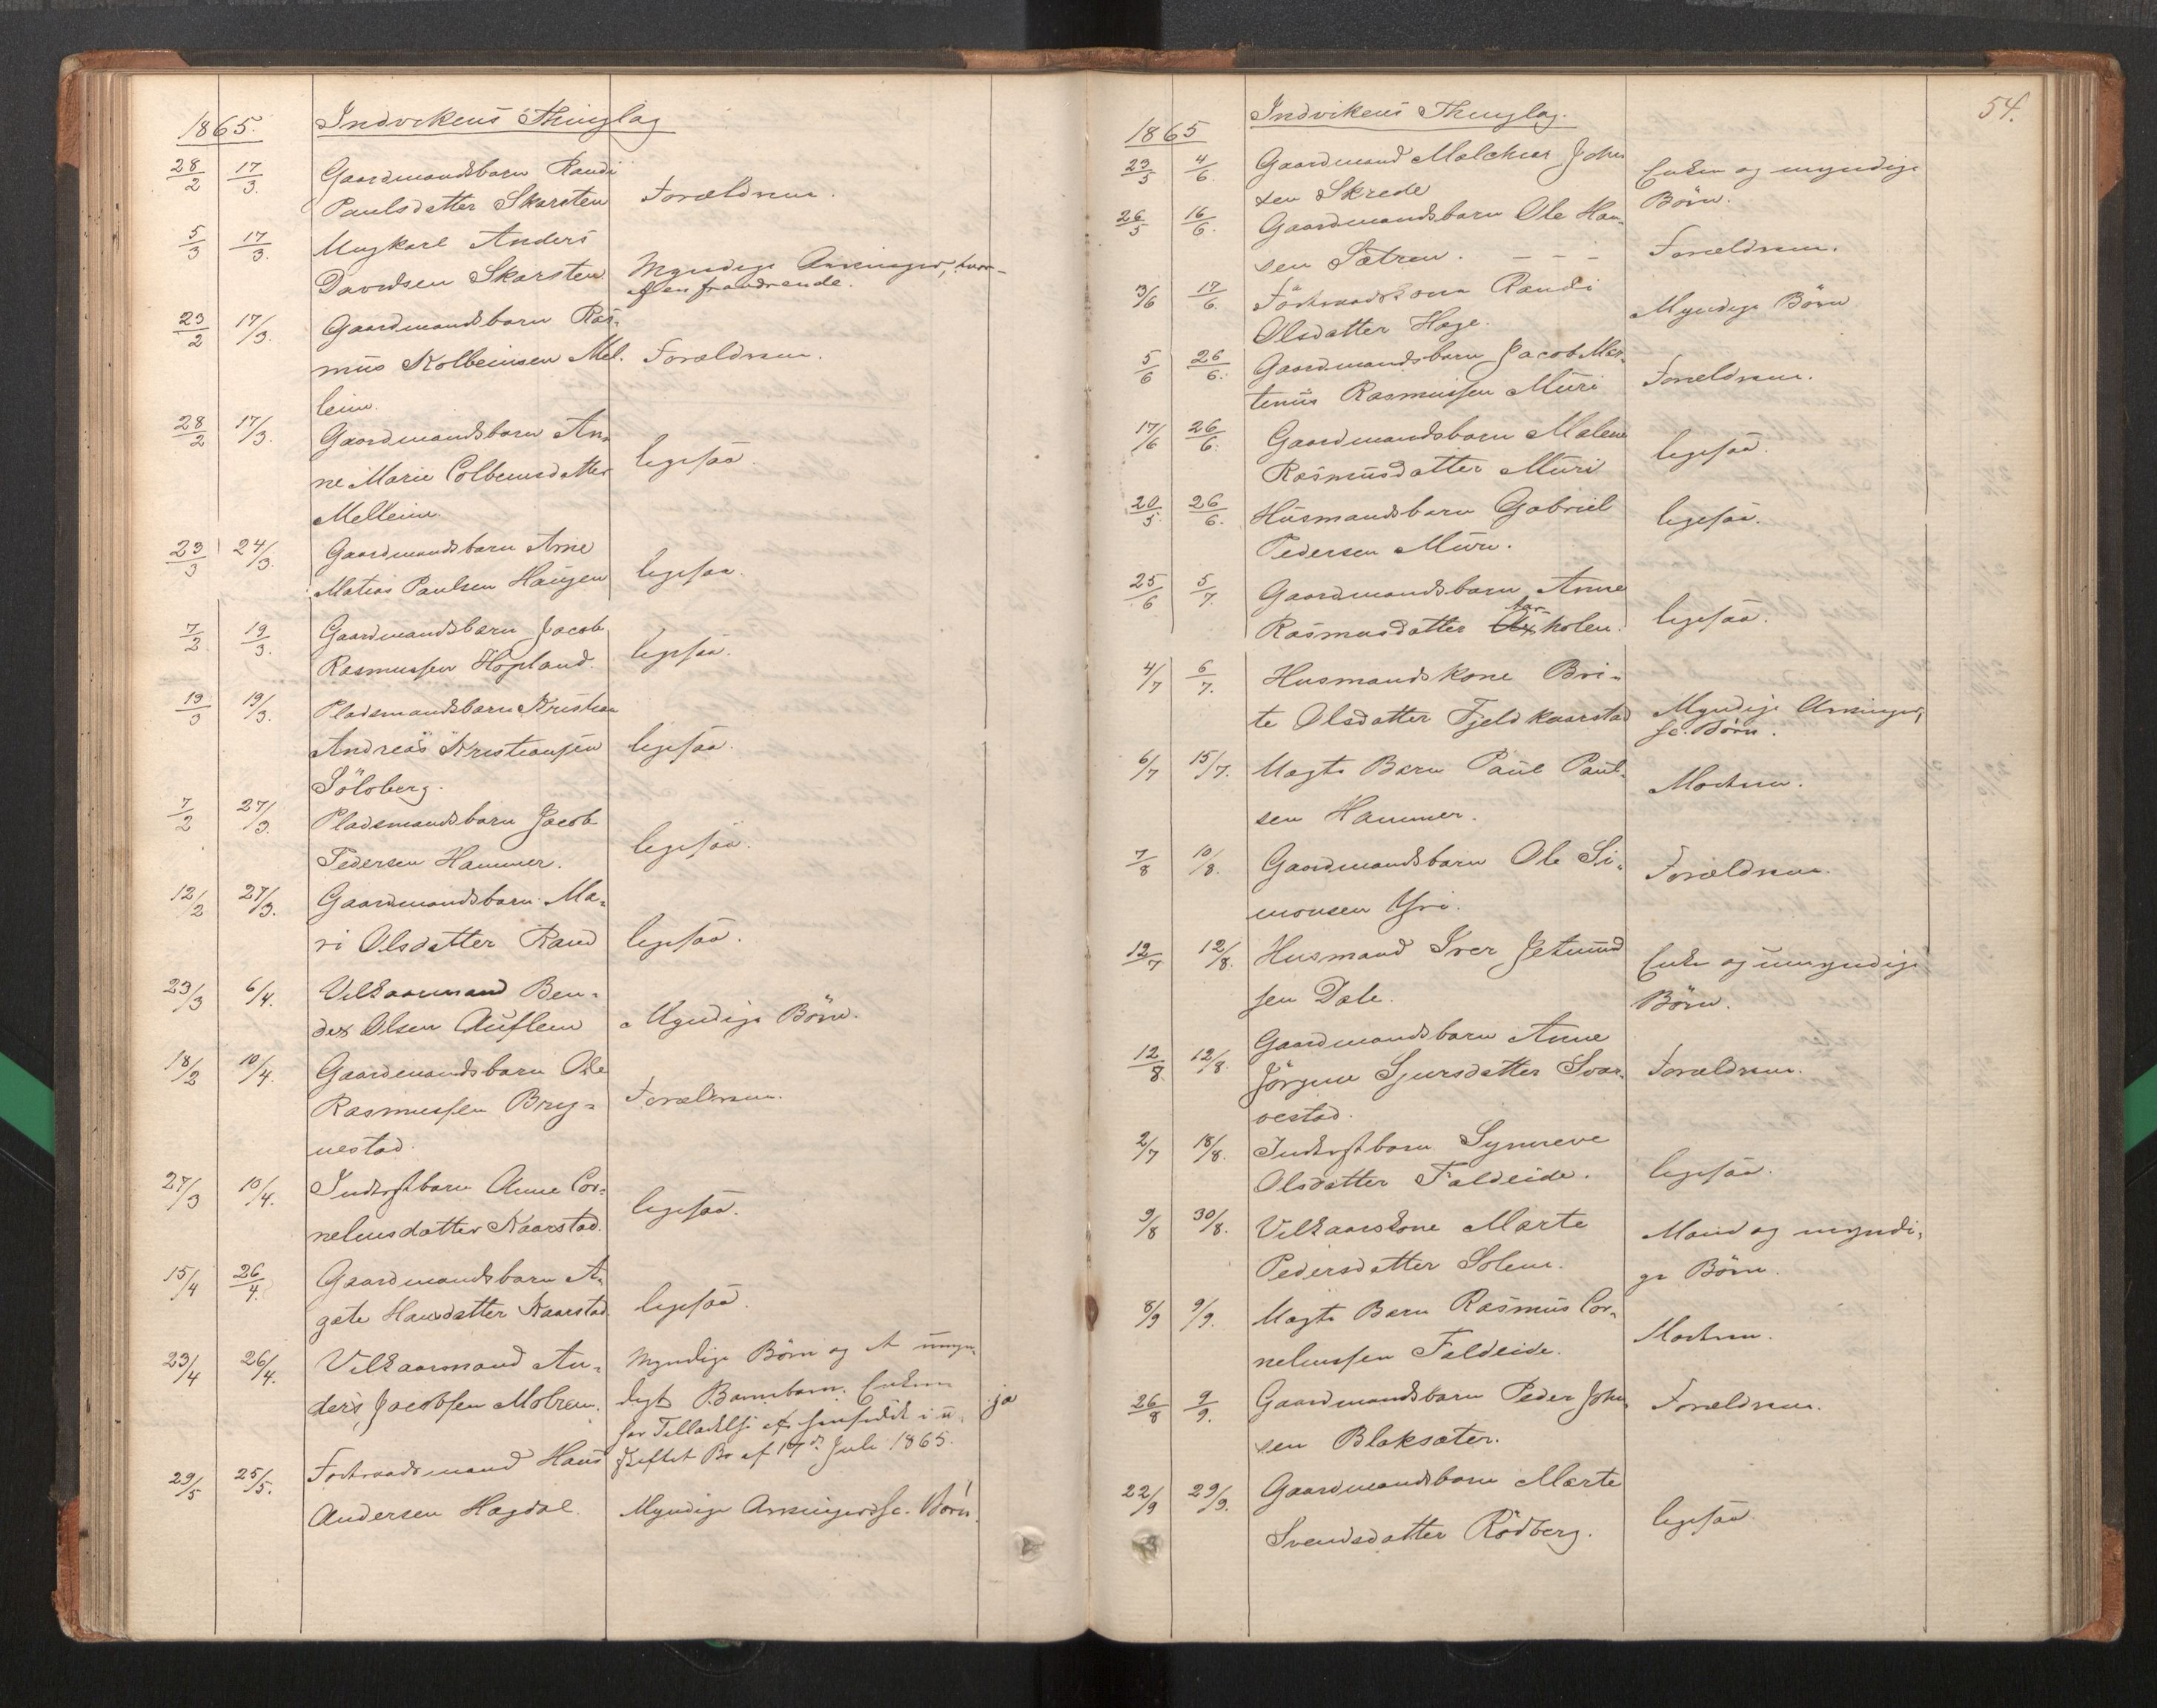 1865. Indvikens Thinglag
28/2 17/3. Gaardmandsbarn Randi
Paulsdatter Skarsten Forældrene.
5/3 17/3. Ungkarl Anders
Davidsen Skarsten Myndige Arvinger, hvor-
af en fraværende.
23/2 17/3. Gaardmandsbarn Ras-
mus Kolbeinsen Mel- Forældrene.
leim.
28/2 17/3. Gaardmandsbarn An-
ne Marie Colbeinsdatter ligesaa.
Melleim.
23/3 24/3. Gaardmandsbarn Arne
Matias Paulsen Haugen ligesaa.
7/2 19/3. Gaardmandsbarn Jacob
Rasmussen Hopland. ligesaa.
19/3 19/3. Pladsmandsbarn Kristian
Andreas Kristiansen ligesaa.
Söloberg.
7/2 27/3. Pladsmandsbarn Jacob
Pedersen Hammer. ligesaa.
12/2 27/3. Gaardmandsbarn Ma-
ri Olsdatter Rand ligesaa.
23/3 6/4. Vilkaarmand Ben-
dix Olsen Auflem Myndige Börn.
18/2 10/4. Gaardmandsbarn Ole
Rasmussen Bryg- Forældrene.
nestad.
27/3 10/4. Inderstbarn Anne Cor-
neliusdatter Kaarstad. ligesaa.
15/4 26/4. Gaardmandsbarn A-
gate Hansdatter Kaarstad. ligesaa.
23/4 26/4. Vilkaarmand An- Myndige Börn og et umyn-
ders Jacobsen Molrem. digt Barnebarn. Enken ja
har Tilladelse at hensidde i u-
skiftet Bo af 17de Juli 1865.
29/5 25/5. Forhraadsmand Hans
Andersen Hagdal. Myndige Arvinger sc. Börn.
54.
1865 Indvikens Thinglag.
23/5 4/6. Gaardmand Melchior John-
sen Skrede Enken og myndige
Börn.
26/5 16/6. Gaardmandsbarn Ole Han-
sen Sætren. - - - Forældrene.
3/6 17/6. Forhraadskone Randi
Olsdatter Hage. Myndige Börn
5/6 26/6. Gaardmandsbarn Jacob Mar-
tinus Rasmussen Muri Forældrene.
17/6 26/6. Gaardmandsbarn Malene
Rasmusdatter Muri ligesaa.
20/5 26/6. Husmandsbarn Gabriel
Pedersen Muri. ligesaa.
25/6 5/7. Gaardmandsbarn Anne
Rasmusdatter holen. ligesaa.
4/7 6/7. Husmandskone Bri-
te Olsdatter Fjeldkaarstad Myndige Arvinger,
sc. Börn.
6/7 15/7. Uægte Barn Paul Paul-
sen Hammer. Moderen.
7/8 10/8. Gaardmandsbarn Ole Si-
monsen Yri. Forældrene.
12/7 12/8. Husmand Iver Jetmund-
sen Dale. Enken og umyndige
Börn.
12/8 12/8. Gaardmandsbarn Anne
Jörgine Sjursdatter Svar- Forældrene.
vestad.
2/7 18/8. Inderstbarn Synneve
Olsdatter Faldeide. ligesaa.
9/8 30/8. Vilkaarskone Marte Mand og myndi-
Pedersdatter Solem. ge Börn.
8/9 9/9. Uægte Barn Rasmus Cor-
neliussen Faldeide. Moderen.
26/8 9/9. Gaardmandsbarn Peder John-
sen Blaksæter. Forældrene.
22/9 29/9. Gaardmandsbarn Marte
Svendsdatter Rödberg. ligesaa.